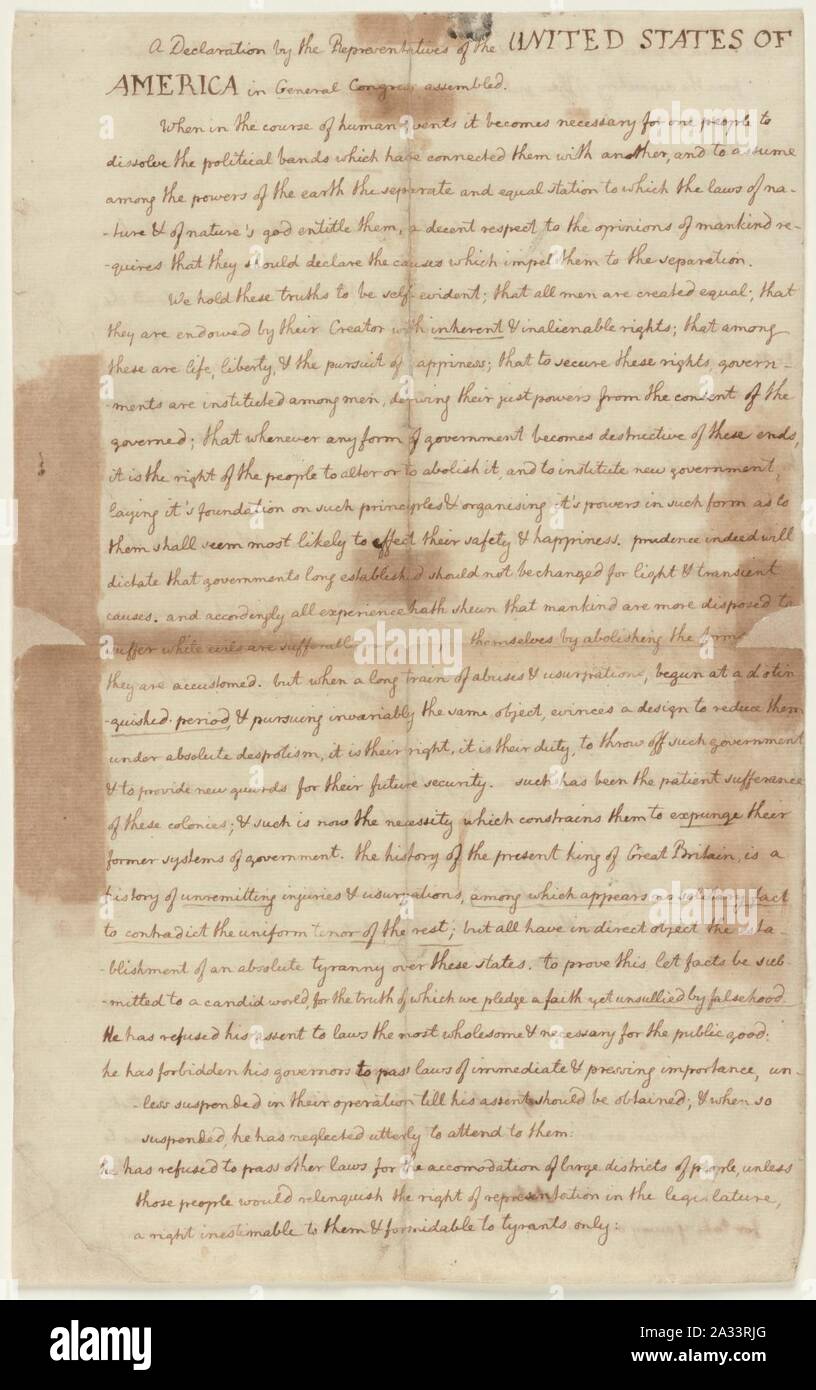 A Declaration by the Representatives of the UNITED STATES OF
AMERICA in General Congress assembled.
When in the course of human events it becomes necessary for one people to
dissolve the political bands which have connected them with another, and to assume
among the powers of the earth the separate and equal station to which the laws of na-
-ture & of nature's god entitle them, a decent respect to the opinions of mankind re-
-quires that they should declare the causes which impel them to the separation.
We hold these truths to be self-evident; that all men are created equal; that
they are endowed by their Creator with inherent & inalienable rights; that among
these are life, liberty, & the pursuit of happiness; that to secure these rights, govern-
-ments are instituted among men, deriving their just powers from the consent of the
governed; that whenever any form of government becomes destructive of these ends,
it is the right of the people to alter or to abolish it, and to institute new government,
laying it's foundation on such principles & organising it's powers in such form as to
them shall seem most likely to effect their safety & happiness. prudence indeed will
dictate that governments long established should not be changed for light & transient
causes. and accordingly all experience hath shewn that mankind are more disposed to
suffer while evils are sufferable themselves by abolishing the forms
they are accustomed. but when a long train of abuses & usurpations, begun at a distin
-guished period, & pursuing invariably the same object, evinces a design to reduce them
under absolute despotism, it is their right, it is their duty, to throw off such government
& to provide new guards for their future security. such has been the patient sufferance
of these colonies; & such is now the necessity which constrains them to expunge their
former systems of government. the history of the present king of Great Britain, is a
history of unremitting injuries & usurpations, among which appears no solitary fact
to contradict the uniform tenor of the rest; but all have in direct object the esta-
-blishment of an absolute tyranny over these states. to prove this let facts be sub-
-mitted to a candid world, for the truth of which we pledge a faith yet unsullied by falsehood.
He has refused his assent to laws the most wholesome & necessary for the public good:
he has forbidden his governors to pass laws of immediate & pressing importance, un-
-less suspended in their operation till his assent should be obtained; & when so
suspended, he has neglected utterly to attend to them:
he has refused to pass other laws for the accomodation of large districts of people, unless
those people would relinquish the right of representation in the legislature,
a right inestimable to them & formidable to tyrants only:
alamy
alamy
alamy
alamy
alamy
Image ID: 2A33RJG
www.alamy.com